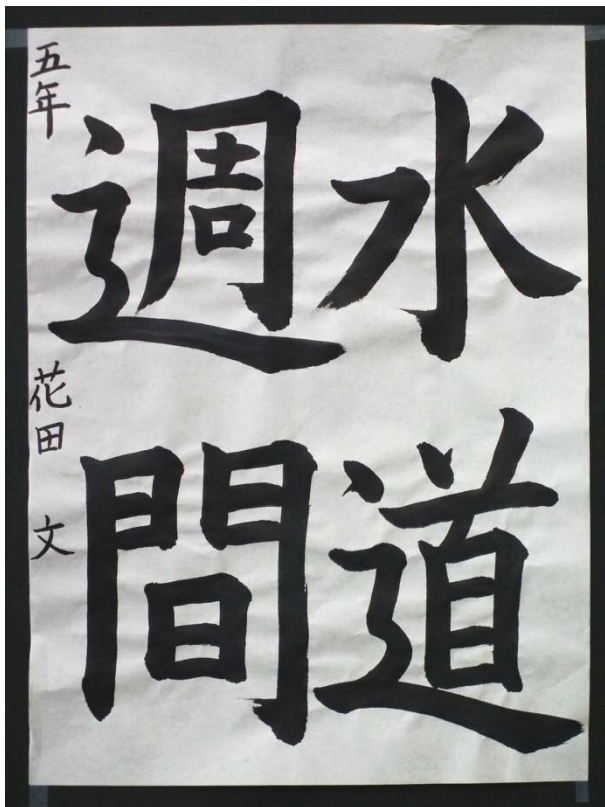 水道
週間
五年 花田 文